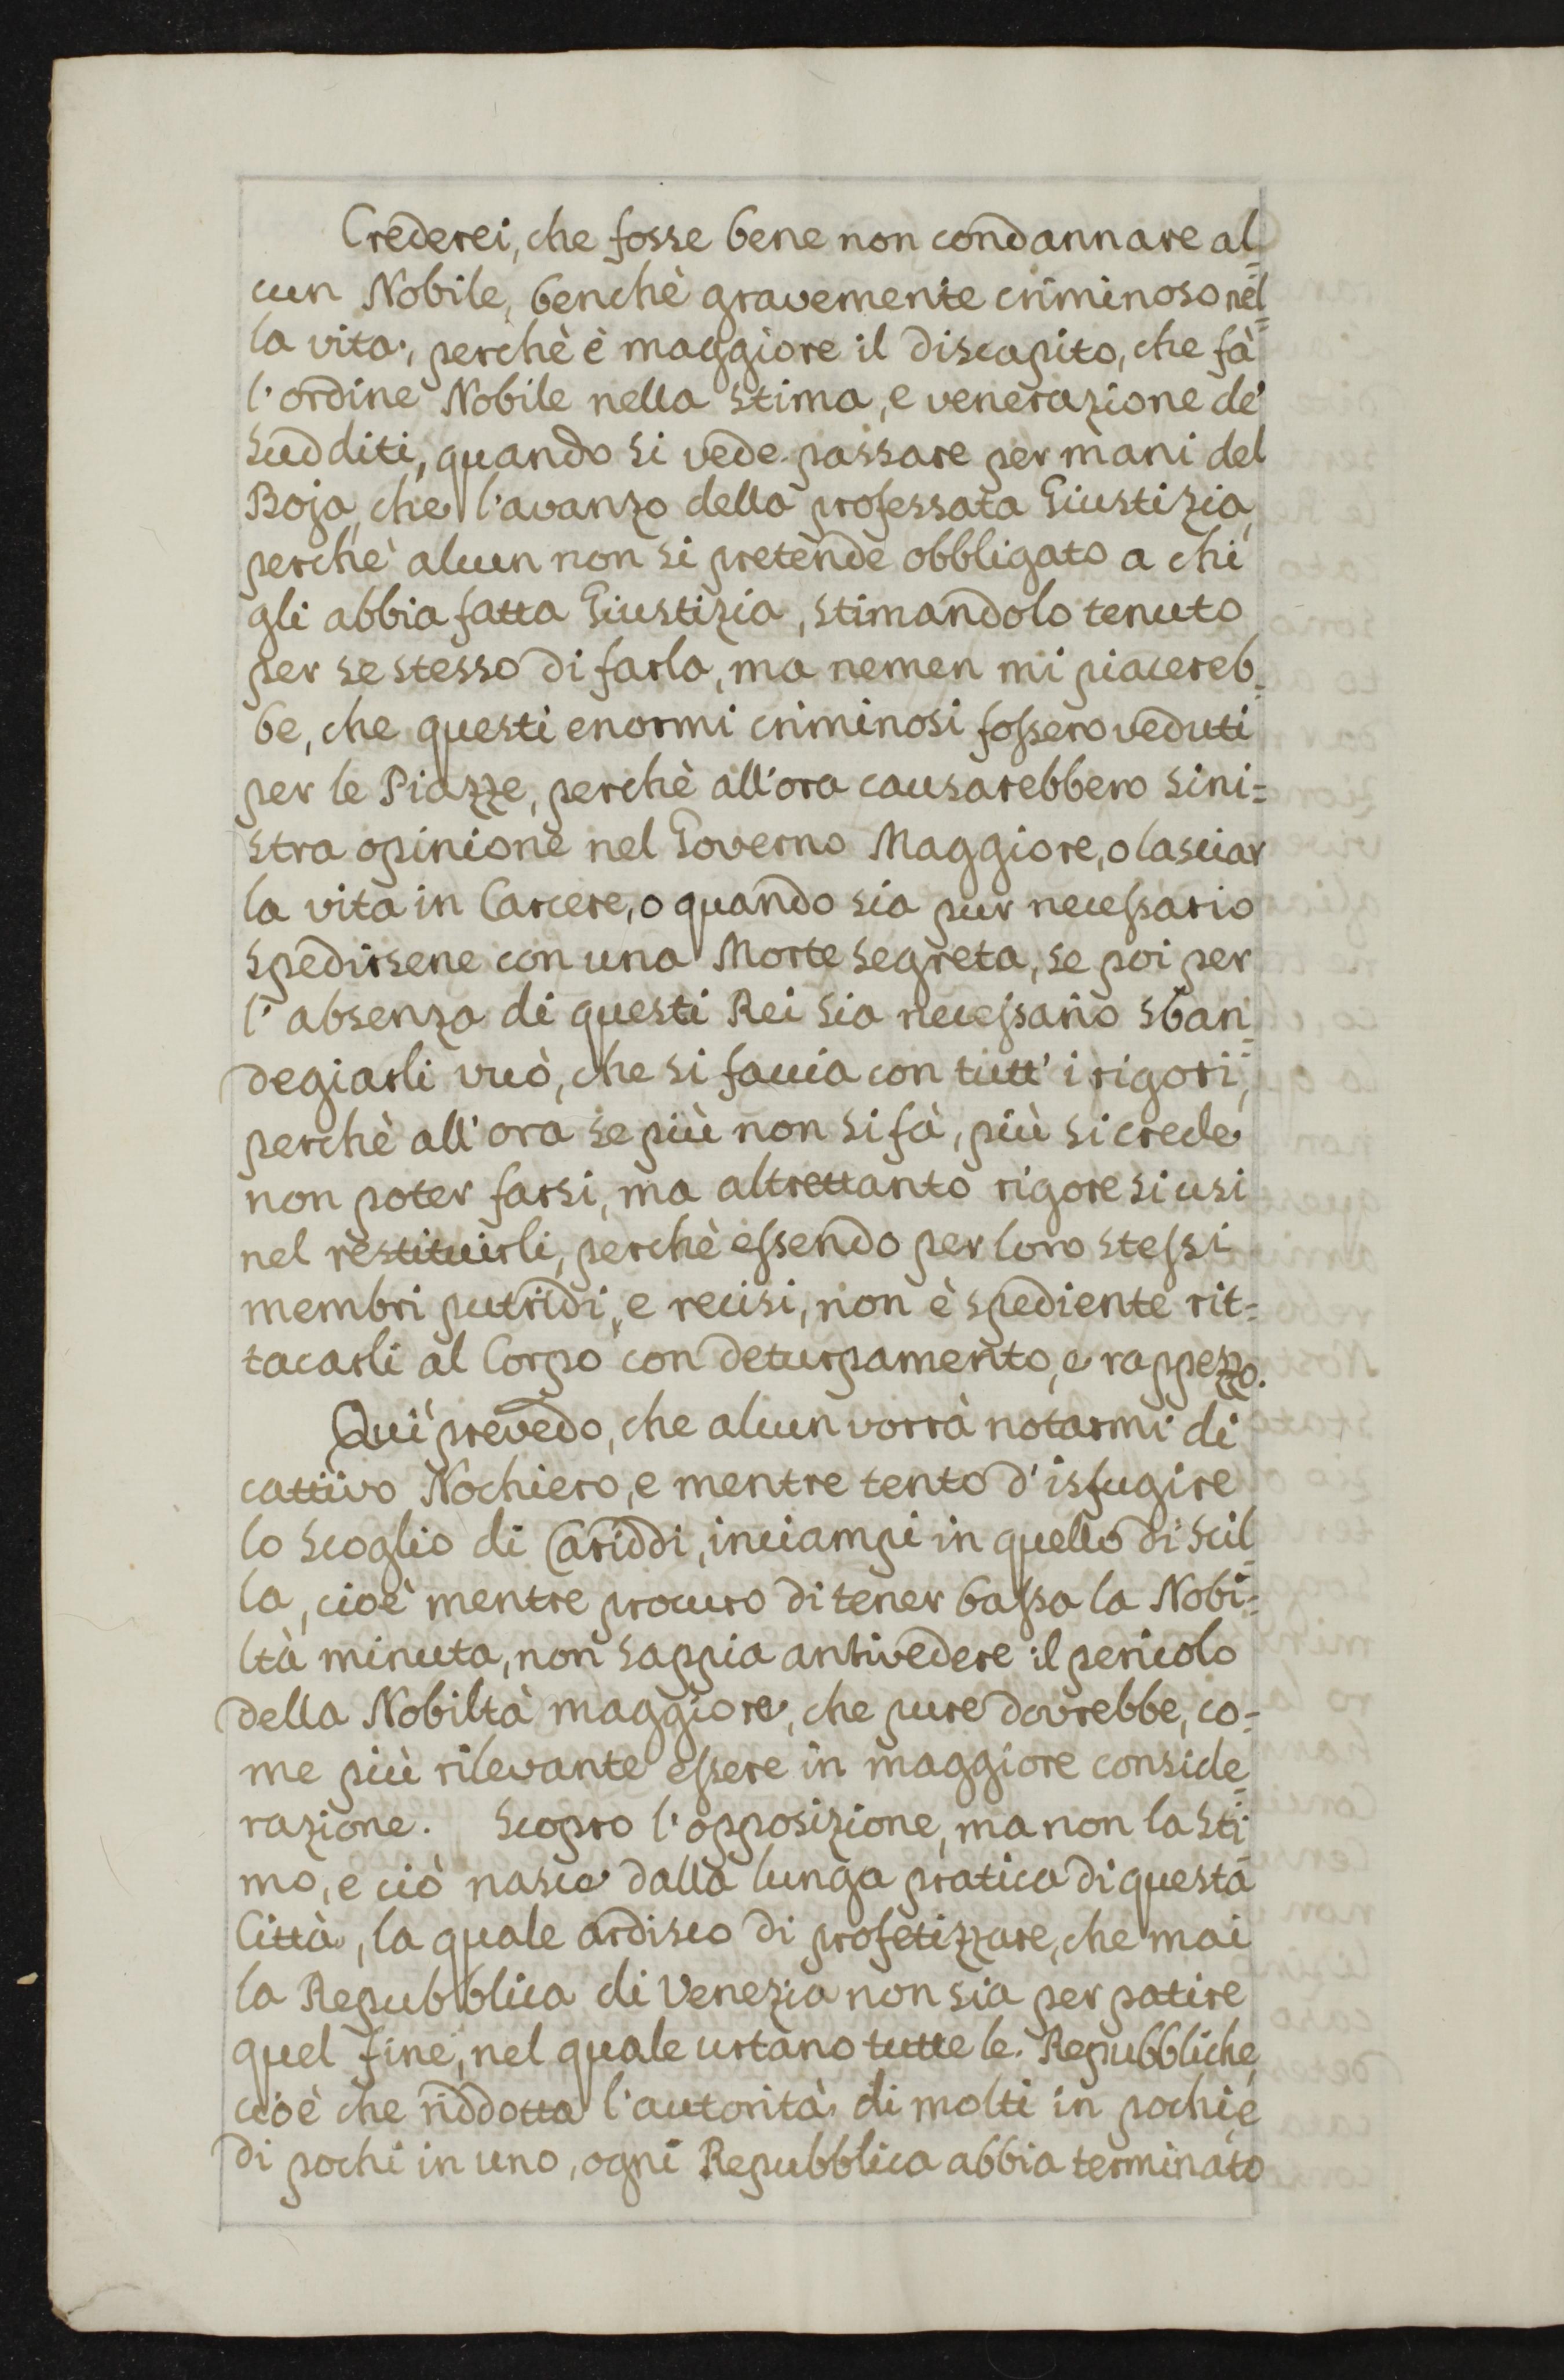 Crederei, che fosse bene non condannare al=
cun Nobile, benchè gravemente criminoso nel=
la vita, perchè è maggiore il discapito, che fà
l'ordine Nobile nella stima, e venerazione de'
Sudditi, quando si vede passare per mani del
Boja, che l'avanzo della professata Giustizia,
perchè alcun non si pretende obbligato a chi
gli abbia fatta Giustizia, stimandolo tenuto
per se stesso di farla, ma nemen mi piacereb=
be, che questi enormi criminosi fossero veduti
per le Piazze, perchè all'ora causarebbero sini=
stra opinione nel Governo Maggiore, o lasciar
la vita in Carcere, o quando sia pur necessario
spedirsene con una Morte segreta, se poi per
l'absenza di questi Rei sia necessario sban=
degiarli vuò, che si faccia con tutt' i rigori,
perchè all'ora se più non si fà, più si crede
non poter farsi, ma altrettanto rigore si usi
nel restituirli, perchè essendo per loro stessi
membri putridi, e recisi, non è spediente rit=
tacarli al Corpo con deturpamento, e rappezzo.
Quì prevedo, che alcun vorrà notarmi di
cattiivo Nochiero, e mentre tento d'isfugire
lo scoglio di Cariddi, inciampi in quello di Scil=
la, cioè mentre procuro di tener bassa la Nobi=
ltà minuta, non sappia antivedere il pericolo
della Nobiltà maggiore, che pure dovrebbe, co=
me più rilevante essere in maggiore conside=
razione. Scopro l'opposizione, ma non la sti=
mo, e ciò nasce dalla lunga pratica di questa
Città, la quale ardisco di profetizzare, che mai
la Repubblica di Venezia non sia per patire
quel fine, nel quale urtano tutte le Repubbliche,
cioè che riddotta l'autorità di molti in pochi, e
di pochi in uno, ogni Repubblica abbia terminato